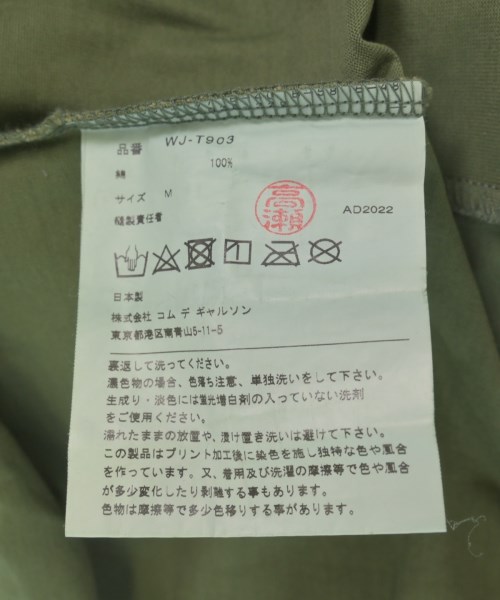 品番 WJ-T903
綿 100%
サイズ M
縫製責任者
高瀬
AD2022
日本製
株式会社 コム デ ギャルソン
東京都港区南青山5-11-5
裏返して洗ってください。
濃色物の場合、色落ち注意、単独洗いをして下さい。
生成り・淡色には蛍光増白剤の入っていない洗剤
をご使用ください。
濡れたままの放置や、漬け置き洗いは避けて下さい。
この製品はプリント加工後に染色を施し独特な色や風合
を作っています。又、着用及び洗濯の摩擦等で色や風合
が多少変化したり剥離する事もあります。
色物は摩擦等で多少色移りする事があります。